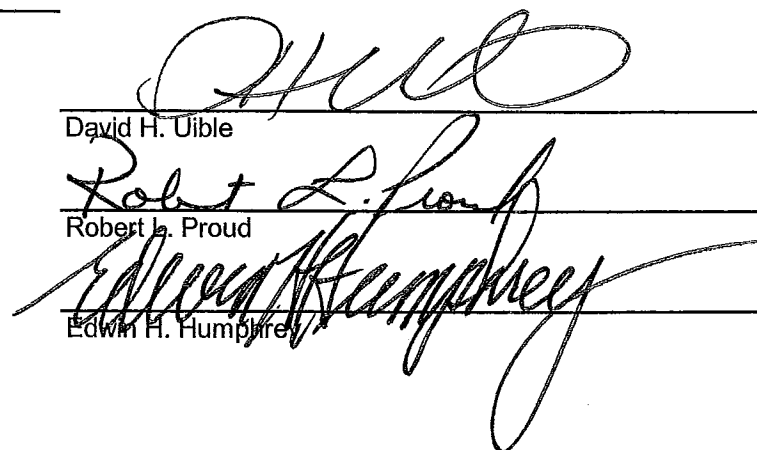 David H. Uible
Robert L. Proud
Robert L. Proud
Edwin H. Humphrey
Edwin H. Humphrey